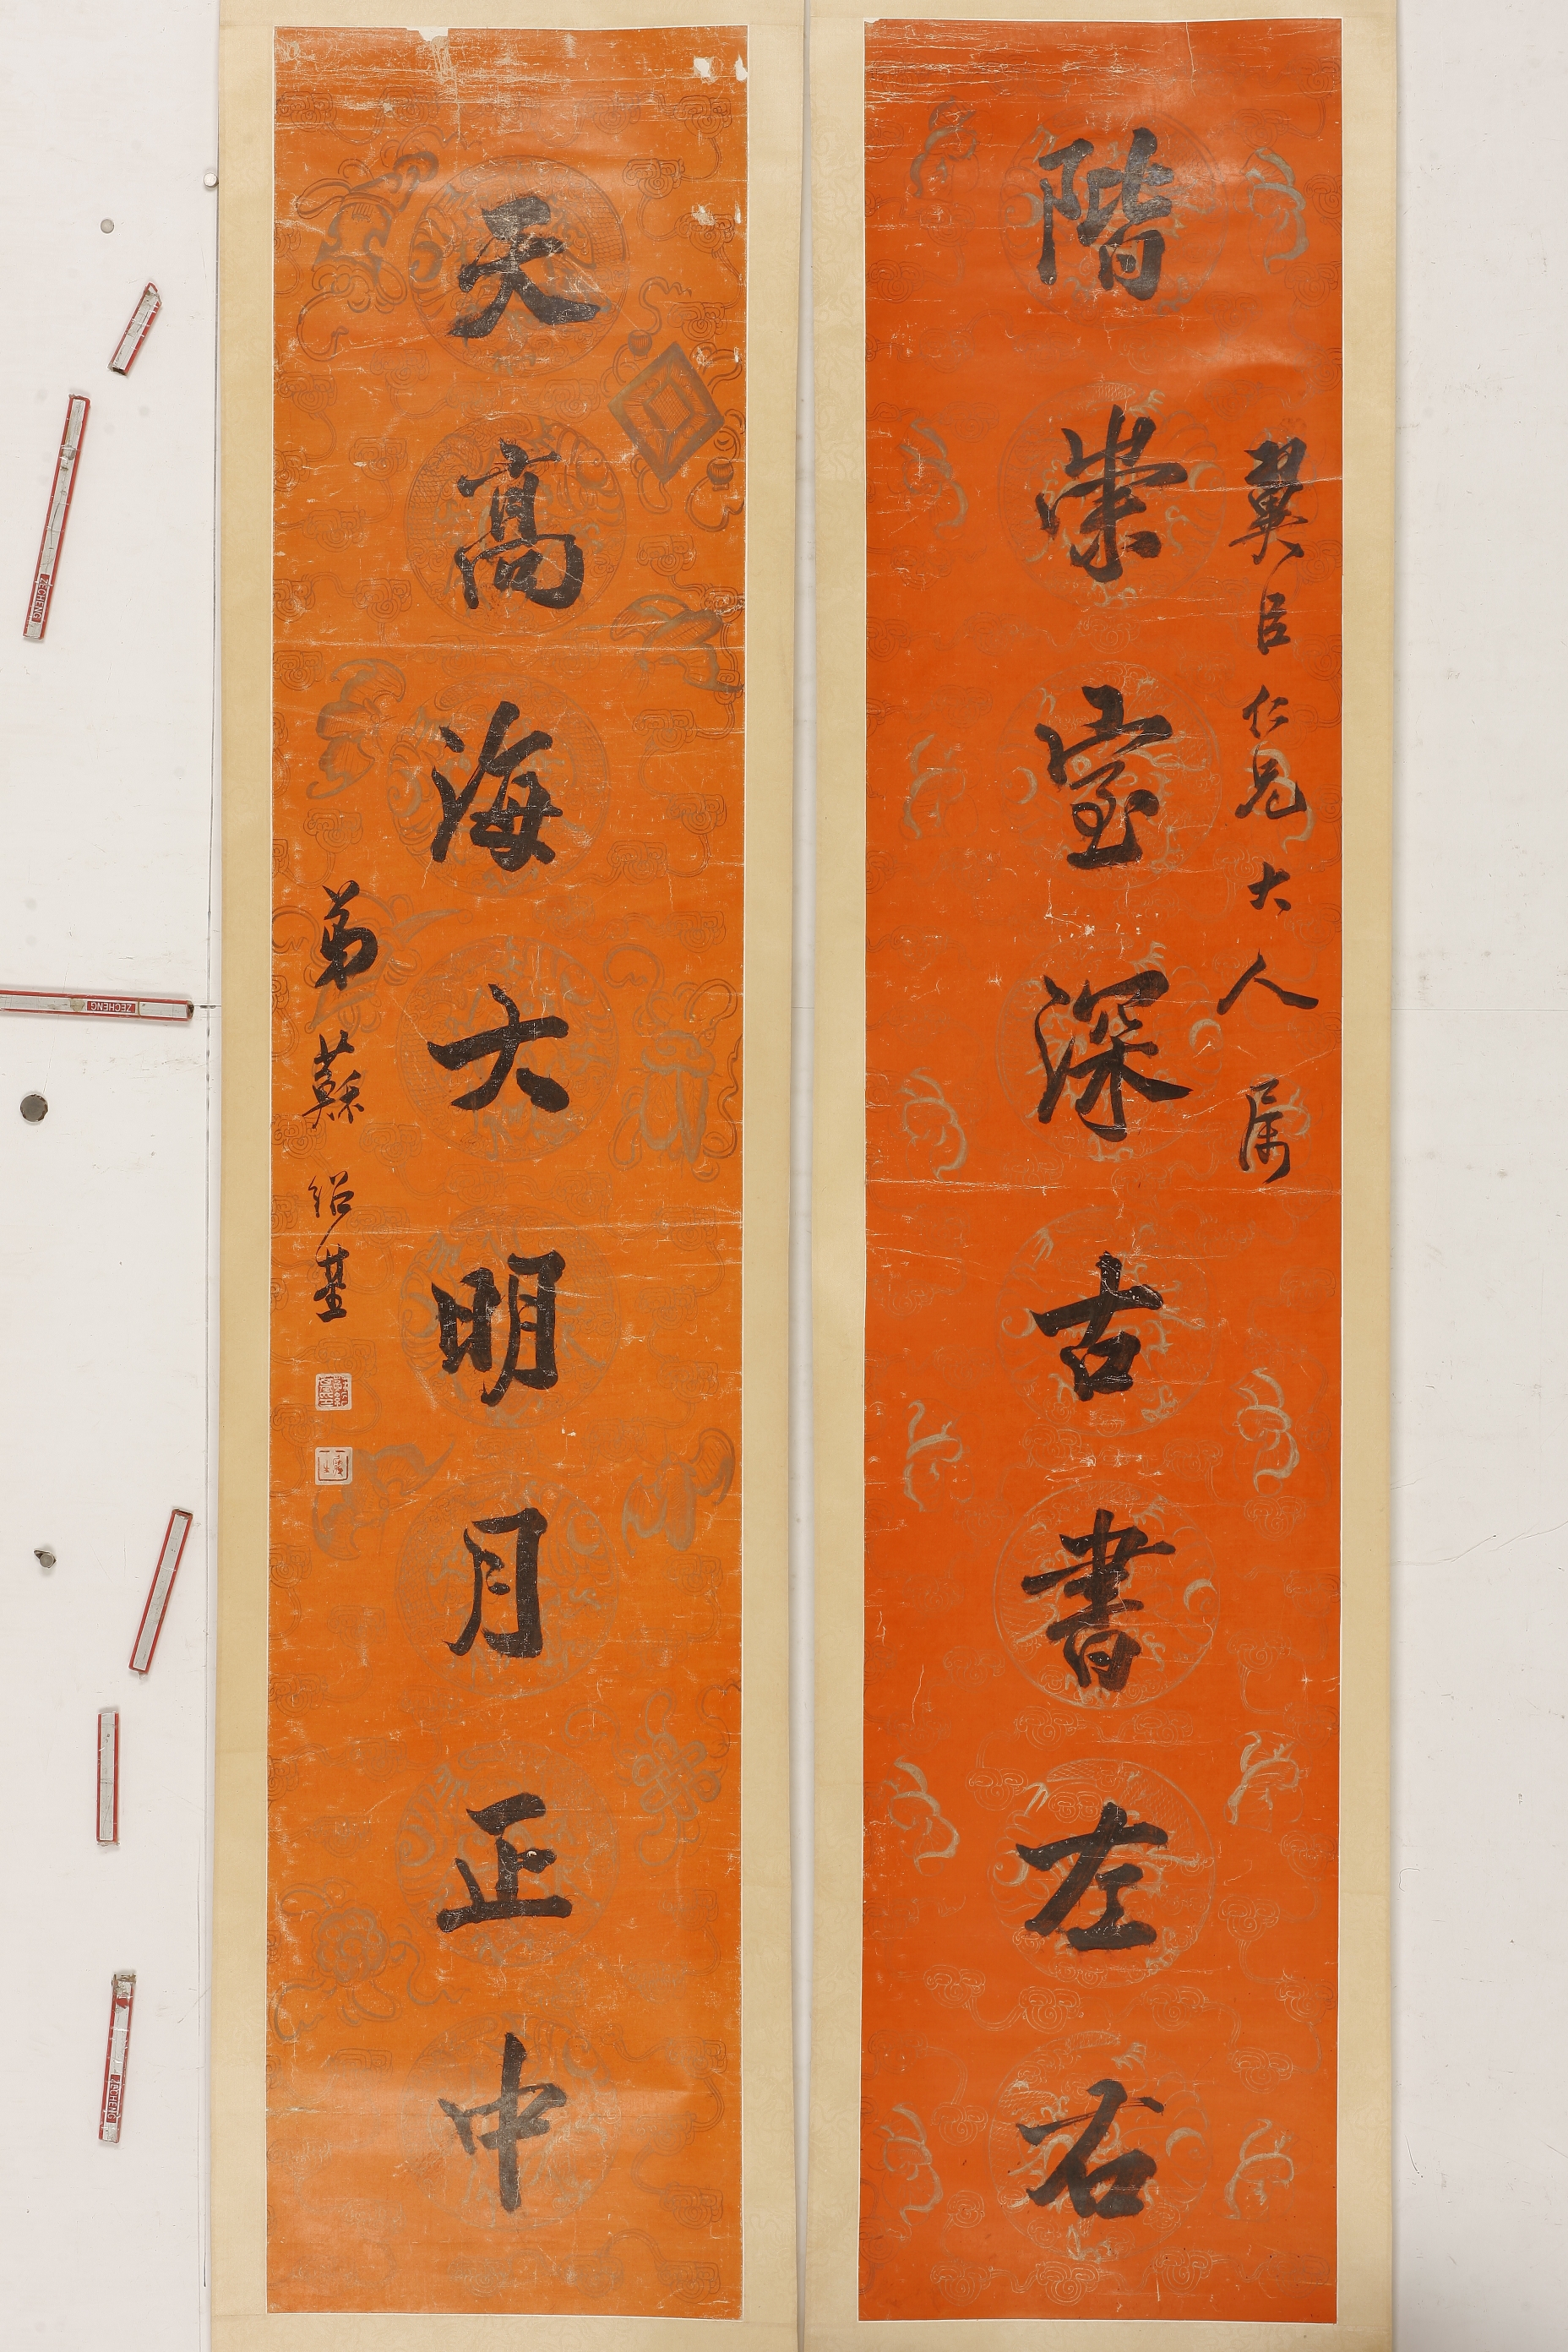 翼臣仁兄大人属
階崇室深古書左右
天高海大明月正中
弟蘇紹基
ZECHENG
ZECHENG
ZECHENG